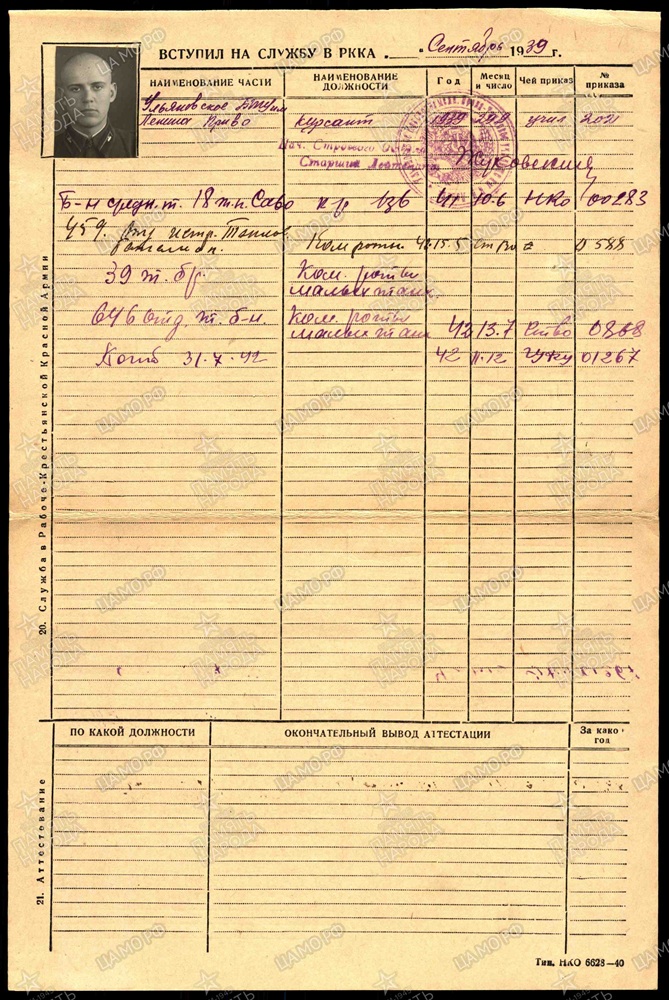 ВСТУПИЛ НА СЛУЖБУ В РККА . Сентябрь 1939 г.
НАИМЕНОВАНИЕ ЧАСТИ
НАИМЕНОВАНИЕ ДОЛЖНОСТИ
Год
Месяц и число
Чей приказ
№ приказа
Ульяновское БТУ им
Ленина
курсант 1939 29.9 учил 2021
Нач. Строевого
Старший Лейтенант
Жуковский
Б-н средн. т. 18 т.п. САВО к-р взв 41 10.6 НКО 00283
459. отд истр. Танков
батальон. Ком роты 42.15.5 0588
39 т. бр. Ком. роты
малых танк.
646 отд. т. б-н. Ком. роты
малых танк 42 13.7 0868
Погиб 31.7.42 42 11.12 ГУКУ 01267
20. Служба в Рабоче-Крестьянской Красной Армии
ПО КАКОЙ ДОЛЖНОСТИ
ОКОНЧАТЕЛЬНЫЙ ВЫВОД АТТЕСТАЦИИ
За какой год
21. Аттестование
Тип. НКО 6628—40
ЦАМО.РФ
ПАМЯТЬ НАРОДА